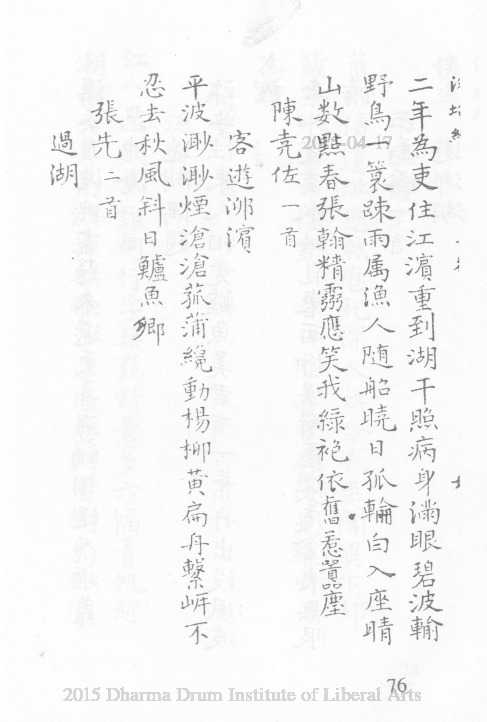 二年為吏住江濵重到湖干照病身滿眼碧波輸
野鳥一簑踈雨属漁人随船曉日孤輪白入座晴
山數點春張翰精霛應笑我綠袍依舊惹囂塵
陳堯佐一首
客遊㳕濵
平波渺渺煙滄滄菰蒲纔動楊柳黄扁舟繫岸不
忍去秋風斜日鱸魚鄉
張先二首
過湖
2015-04-17
76
2015 Dharma Drum Institute of Liberal Arts